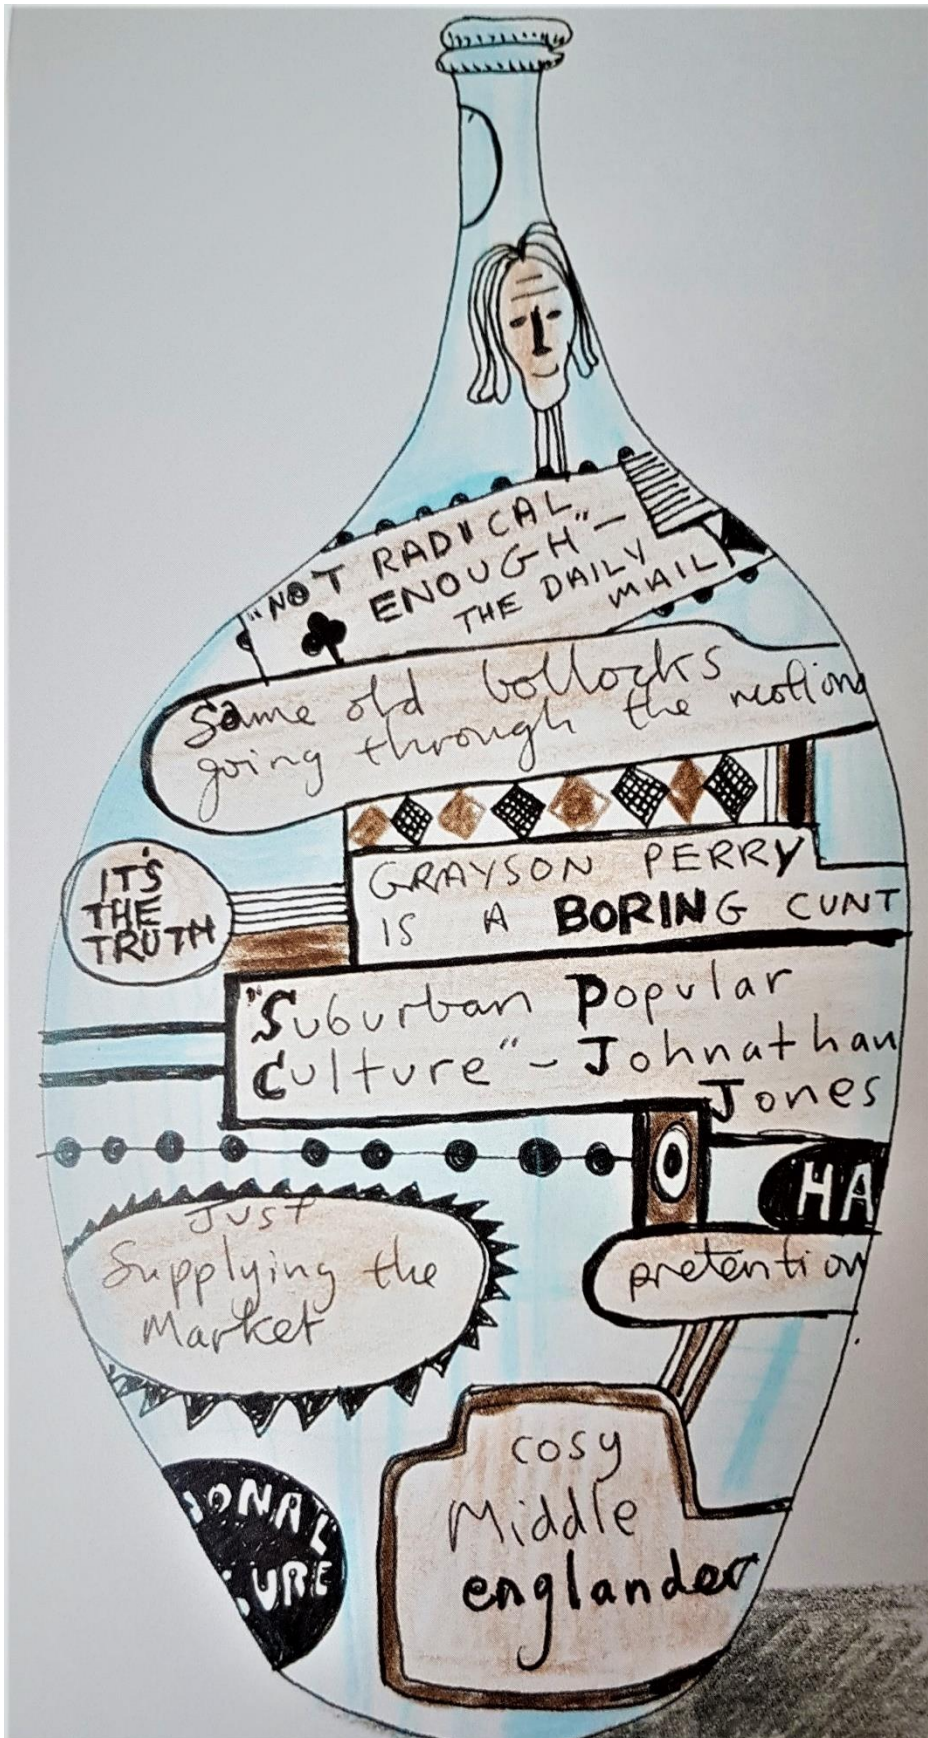 "NOT RADICAL
ENOUGH" —
THE DAILY
MAIL
Same old bollocks
going through the motions
IT'S
THE
TRUTH
GRAYSON PERRY
IS A BORING CUNT
"Suburban Popular
Culture" - Johnathan
Jones
HA
Just
Supplying the
Market
pretention
cosy
Middle
englander
IONAL
URE